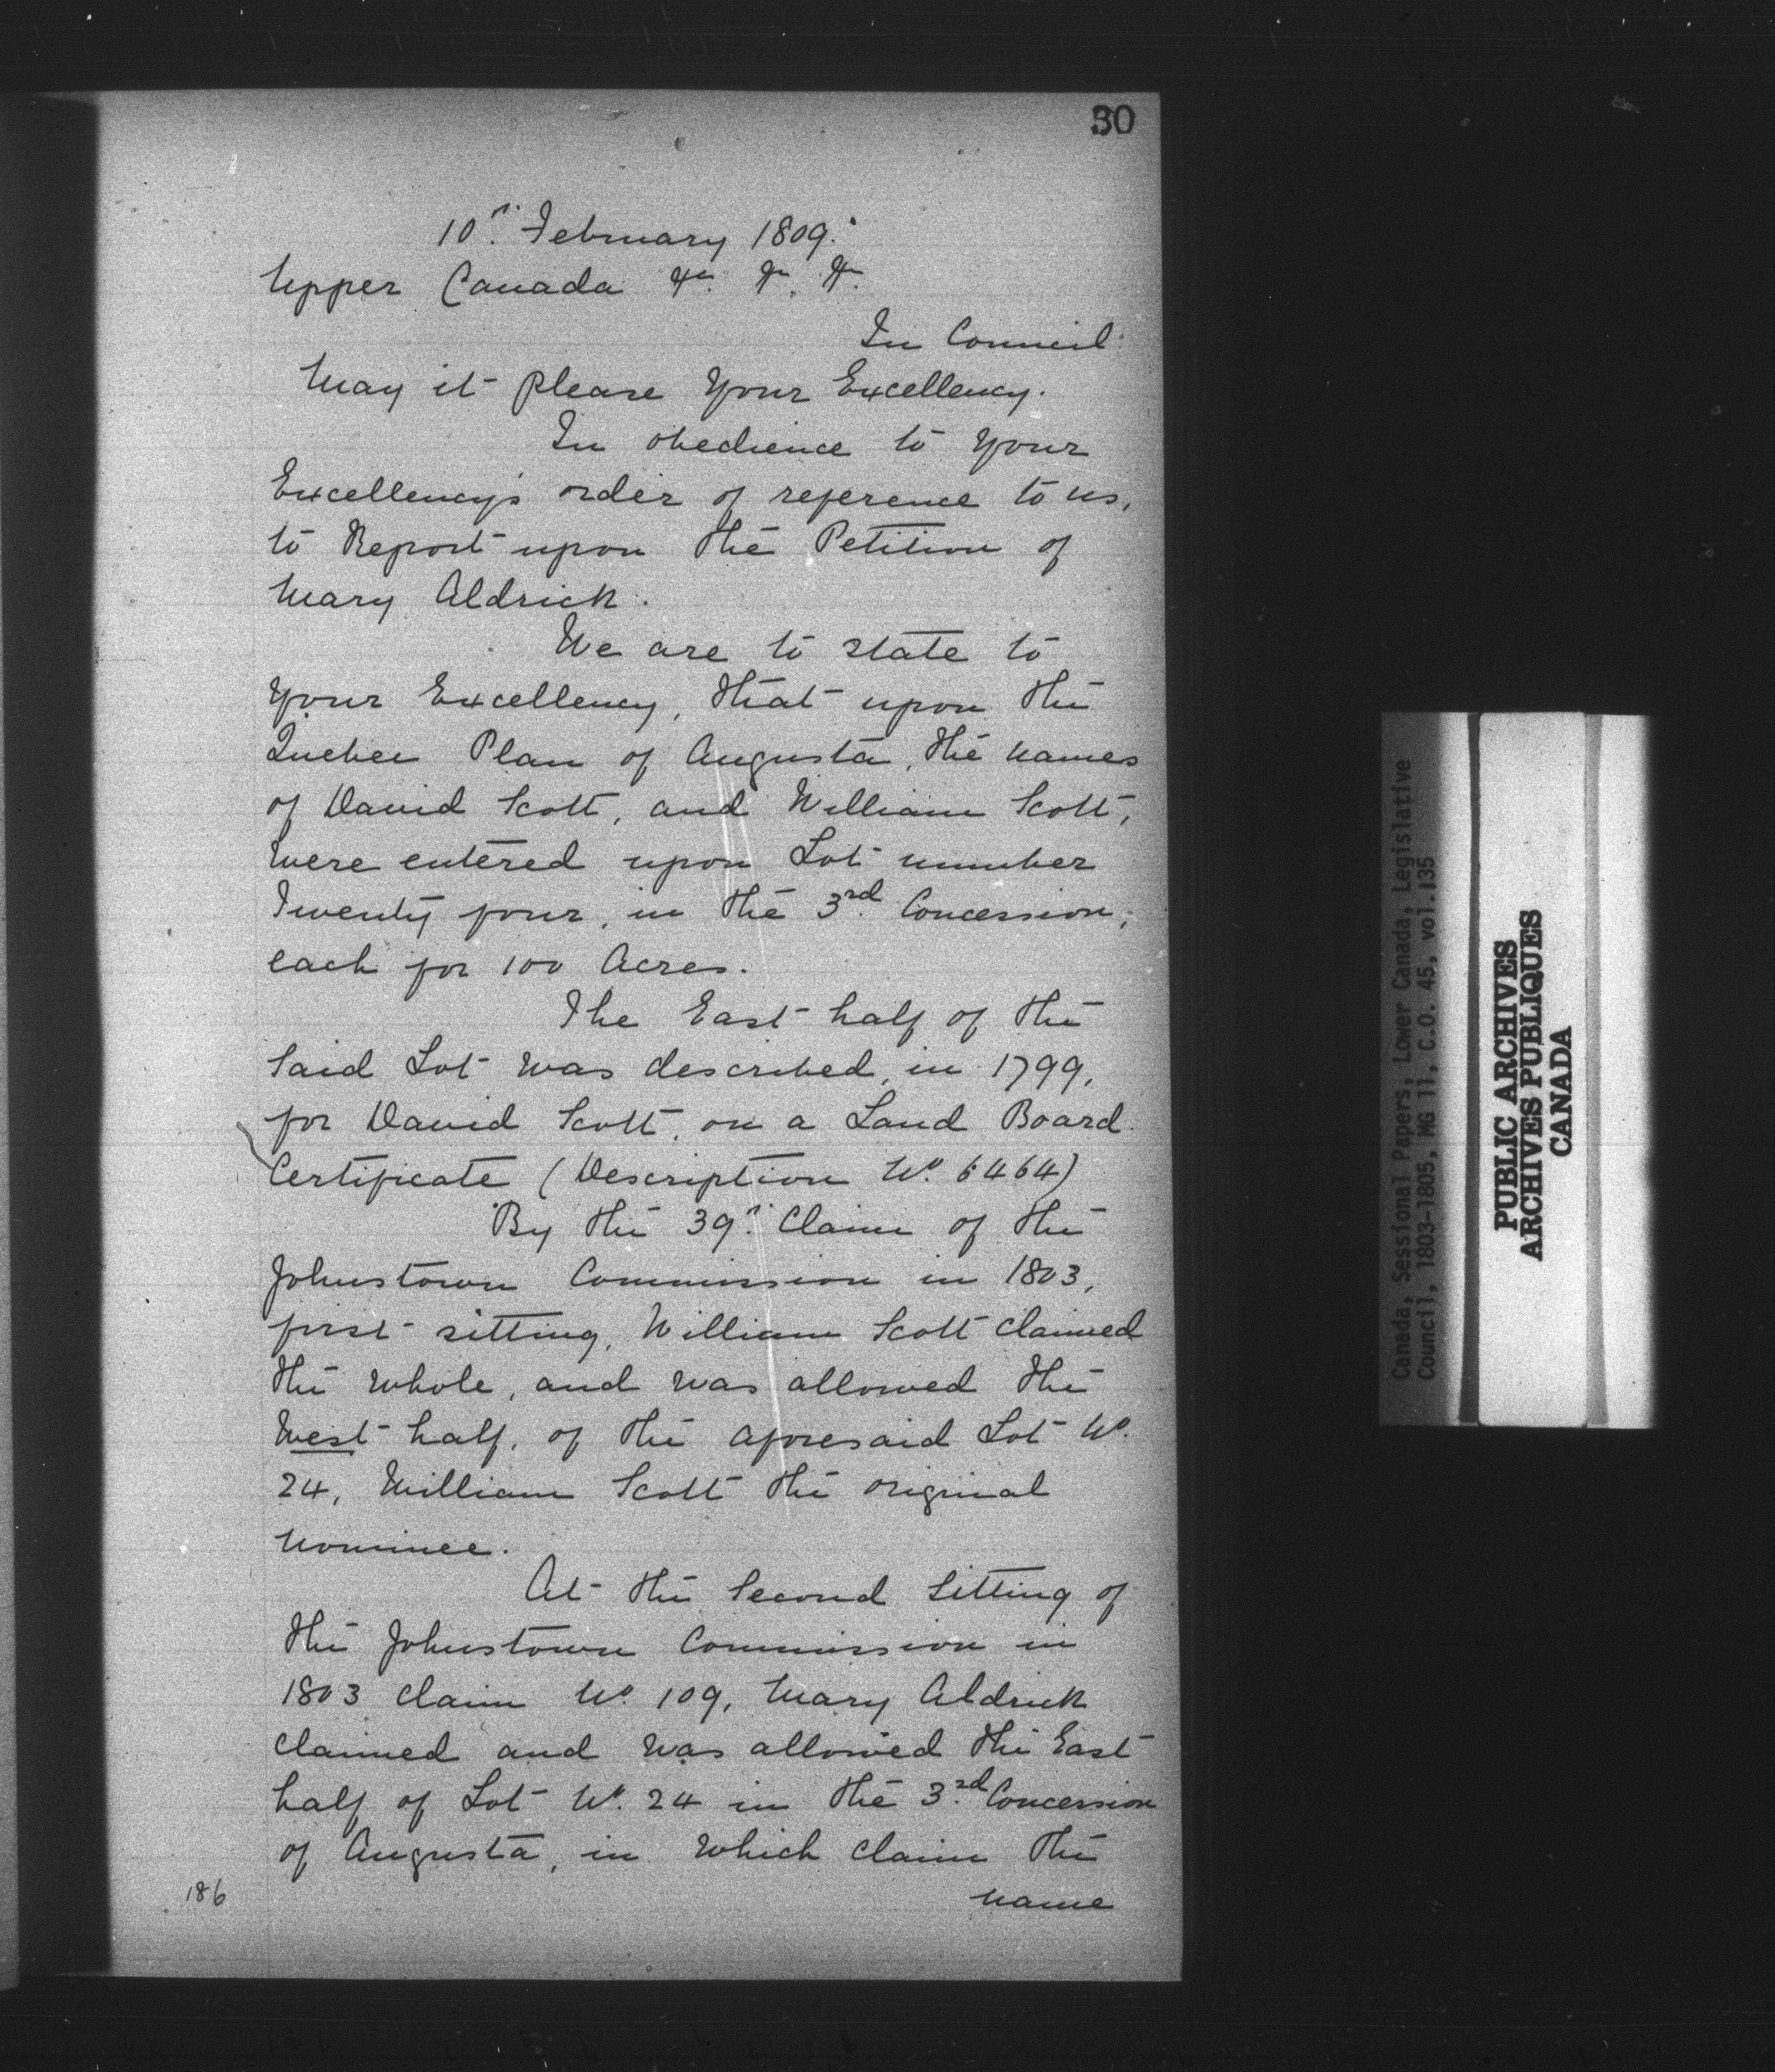 30
10th February 1809.
Upper Canada &c. &c. &c.
In Council
May it please Your Excellency.
In obedience to Your
Excellency's order of reference to us,
to Report upon the Petition of
Mary Aldrick.
We are to state to
Your Excellency, that upon the
Quebec Plan of Augusta, the names
of David Scott, and William Scott,
were entered upon Lot number
Twenty four, in the 3rd Concession,
each for 100 Acres.
The East half of the
said Lot was described, in 1799,
for David Scott, on a Land Board
Certificate (Description No. 6464)
By the 39th Claim of the
Johnstown Commission in 1803,
first sitting, William Scott claimed
the whole, and was allowed the
West half, of the aforesaid Lot No.
24, William Scott the original
nominee.
At the Second Sitting of
the Johnstown Commission in
1803 claim No. 109, Mary Aldrick
claimed and was allowed the East
half of Lot No. 24 in the 3rd Concession
of Augusta, in which claim the
name
186
Canada, Sessional Papers, Lower Canada, Legislative
Council, 1803-1805, MG 11, C.O. 45, vol.135
PUBLIC ARCHIVES
ARCHIVES PUBLIQUES
CANADA